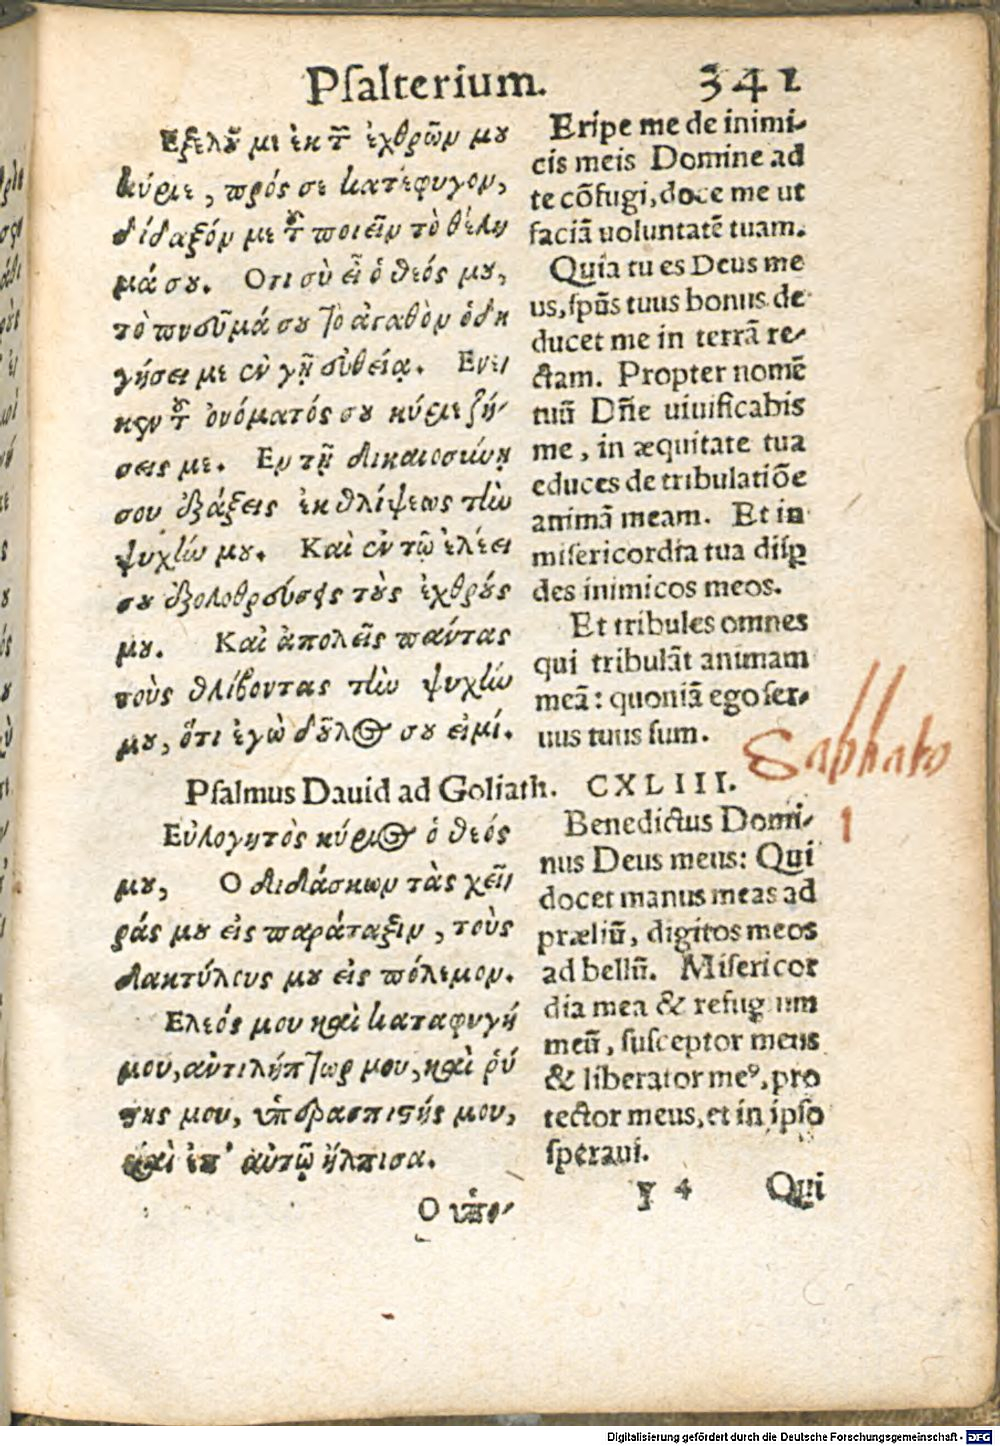 Psalterium. 341
Εξελοῦ με ἐκ τῶν ἐχθρῶν μου
κύριε, πρός σε κατέφυγον,
δίδαξόν με τοῦ ποιεῖν τὸ θέλη
μά σου. Οτι σὺ εἶ ὁ θεός μου,
τὸ πνεῦμά σου τὸ ἀγαθὸν ὁδη
γήσει με ἐν γῇ εὐθείᾳ. Ενε/
κεν τοῦ ὀνόματός σου κύριε ζή/
σεις με. Εν τῇ δικαιοσύνῃ
σου ἐξάξεις ἐκ θλίψεως τὴν
ψυχήν μου. Καὶ ἐν τῷ ἐλέει
σου ἐξολοθρεύσεις τοὺς ἐχθρούς
μου. Καὶ ἀπολεῖς πάντας
τοὺς θλίβοντας τὴν ψυχήν
μου, ὅτι ἐγὼ δοῦλος σου εἰμί.
Eripe me de inimi/
cis meis Domine ad
te cõfugi, doce me ut
faciã uoluntatẽ tuam.
Quia tu es Deus me
us, spũs tuus bonus de
ducet me in terrã re/
ctam. Propter nomẽ
tuũ Dñe uiuificabis
me, in æquitate tua
educes de tribulatiõe
animã meam. Et in
misericordia tua disꝑ
des inimicos meos.
Et tribules omnes
qui tribulãt animam
meã: quoniã ego ser/
uus tuus sum.
Sabbato
Psalmus Dauid ad Goliath. CXLIII.
1
Εὐλογητὸς κύριος ὁ θεός
μου, Ο διδάσκων τὰς χεῖ/
ράς μου εἰς παράταξιν, τοὺς
δακτύλους μου εἰς πόλεμον.
Ελεός μου καὶ καταφυγή
μου, ἀντιλήπτωρ μου, καὶ ῥύ
στης μου, ὑπερασπιστής μου,
καὶ ἐπ' αὐτῷ ἤλπισα.
Ο ὑπο/
Benedictus Domi/
nus Deus meus: Qui
docet manus meas ad
præliũ, digitos meos
ad bellũ. Misericor
dia mea & refugium
meũ, susceptor meus
& liberator meꝰ, pro
tector meus, et in ipso
speraui.
y 4 Qui
Digitalisierung gefördert durch die Deutsche Forschungsgemeinschaft - DFG